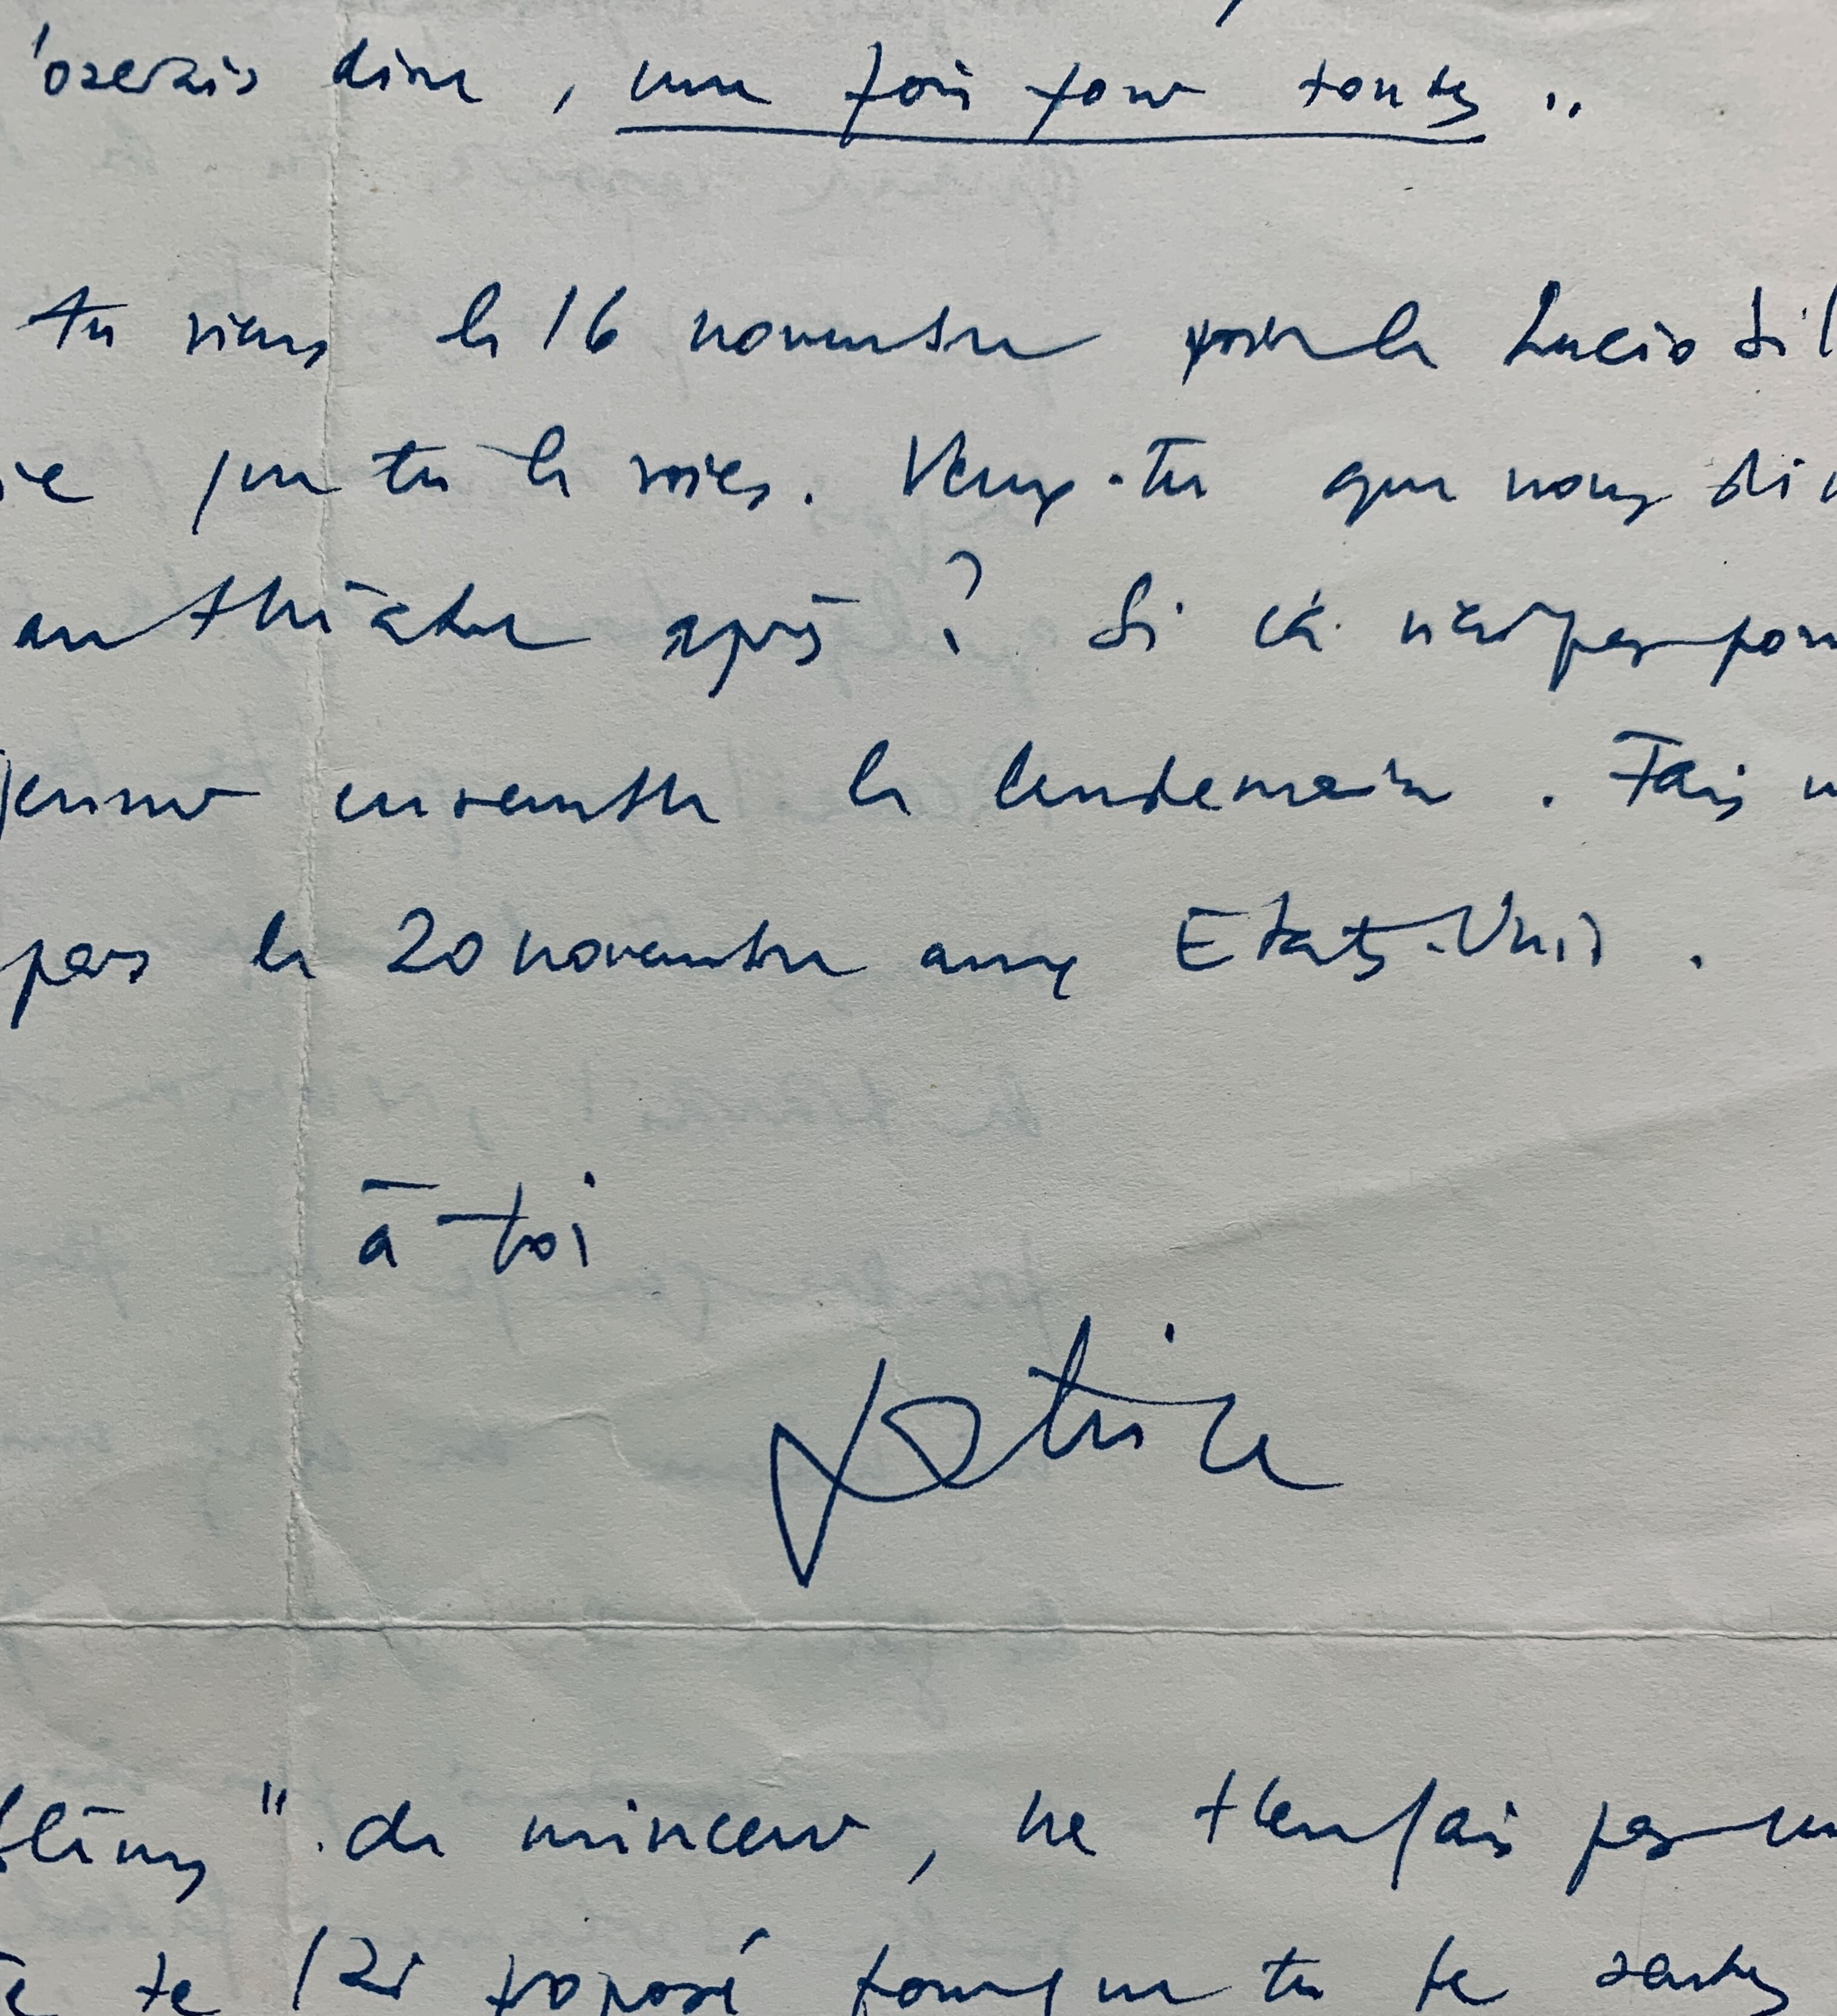 'oserais dire, une fois pour toutes..
tu viens le 16 novembre pour le Lucio Sil
ie que tu le voies. Veux-tu que nous dîn
au théâtre après ? Si ça n'est pas pos
jeuner ensemble le lendemain. Fais
pars le 20 novembre aux Etats-Unis.
à toi
Patrice
" de minceur, ne t'en fais pas
te l'ai proposé pour que tu te sentes